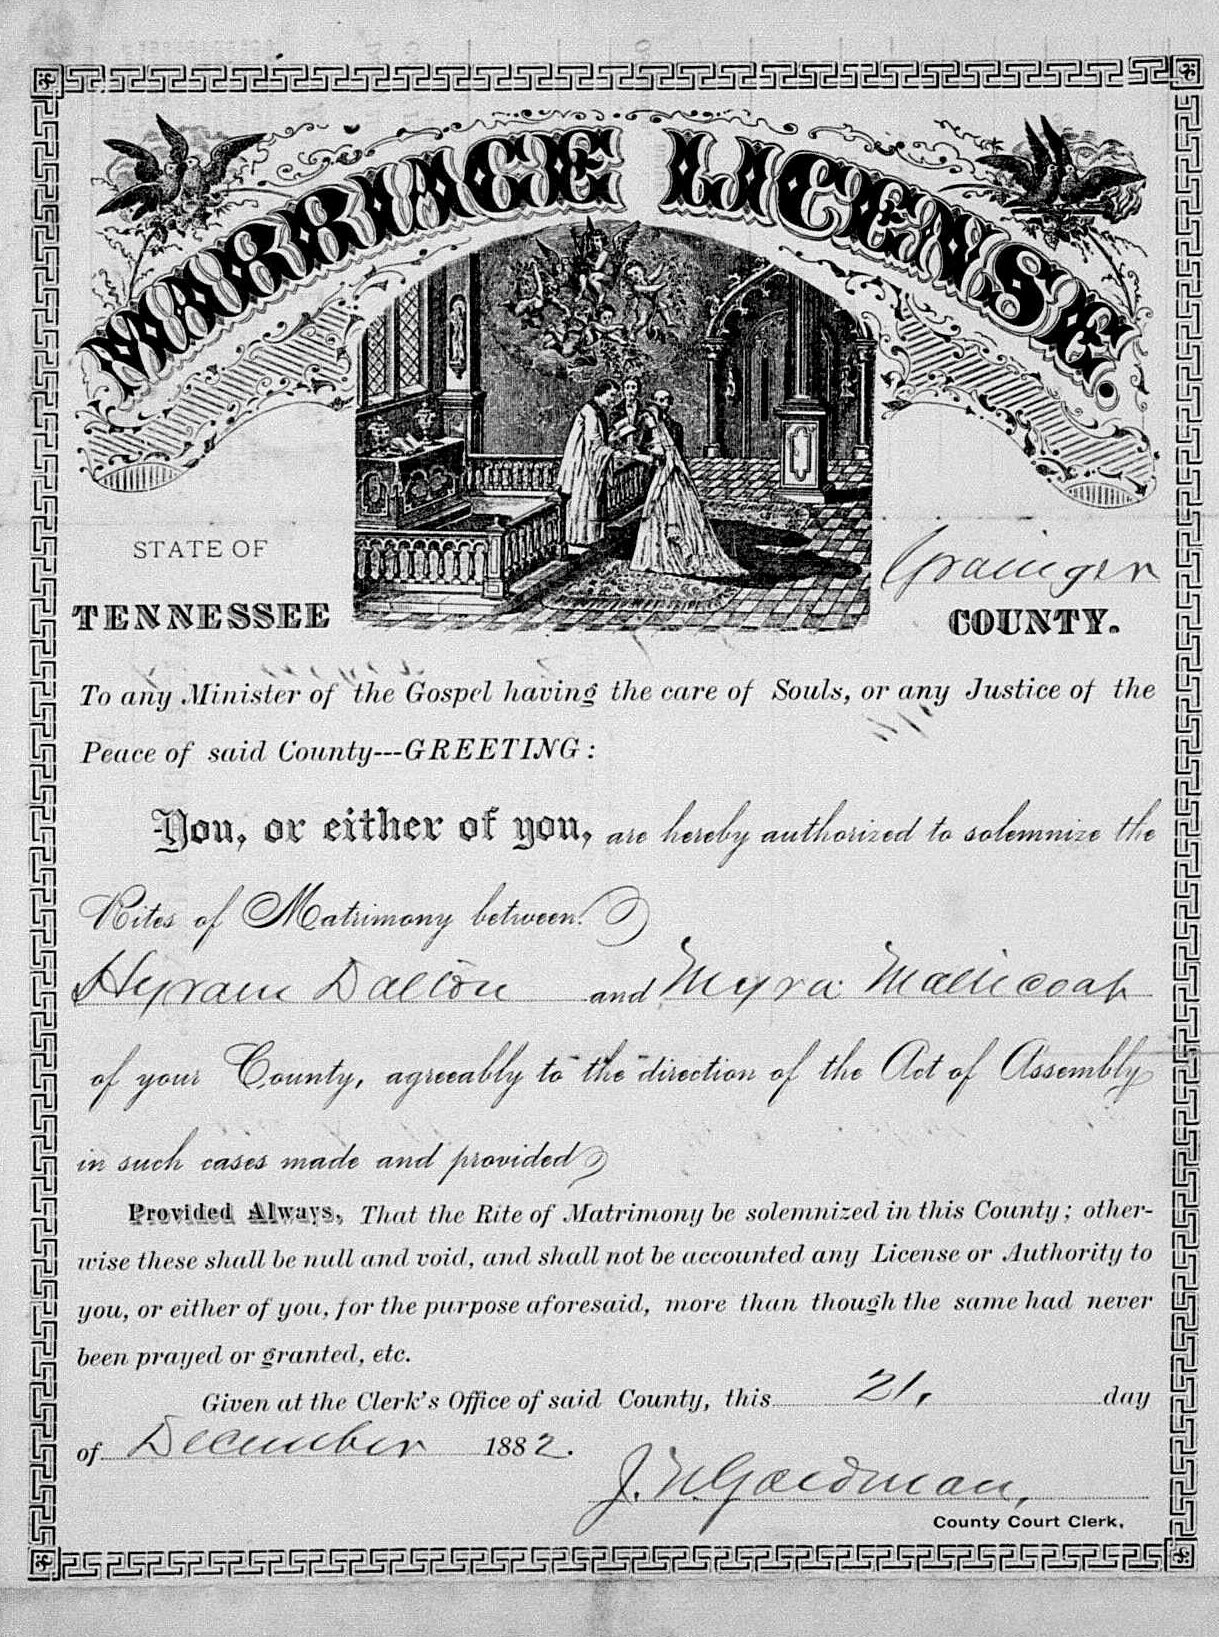 MARRIAGE LICENSE.
STATE OF
TENNESSEE
Grainger
COUNTY.
To any Minister of the Gospel having the care of Souls, or any Justice of the
Peace of said County---GREETING:
You, or either of you, are hereby authorized to solemnize the
Rites of Matrimony between
Hyram Dalton and Myra Mallicoat
of your County, agreeably to the direction of the Act of Assembly
in such cases made and provided
Provided Always, That the Rite of Matrimony be solemnized in this County; other-
wise these shall be null and void, and shall not be accounted any License or Authority to
you, or either of you, for the purpose aforesaid, more than though the same had never
been prayed or granted, etc.
Given at the Clerk's Office of said County, this 21, day
of December 1882.
J. N. Goldman,
County Court Clerk,